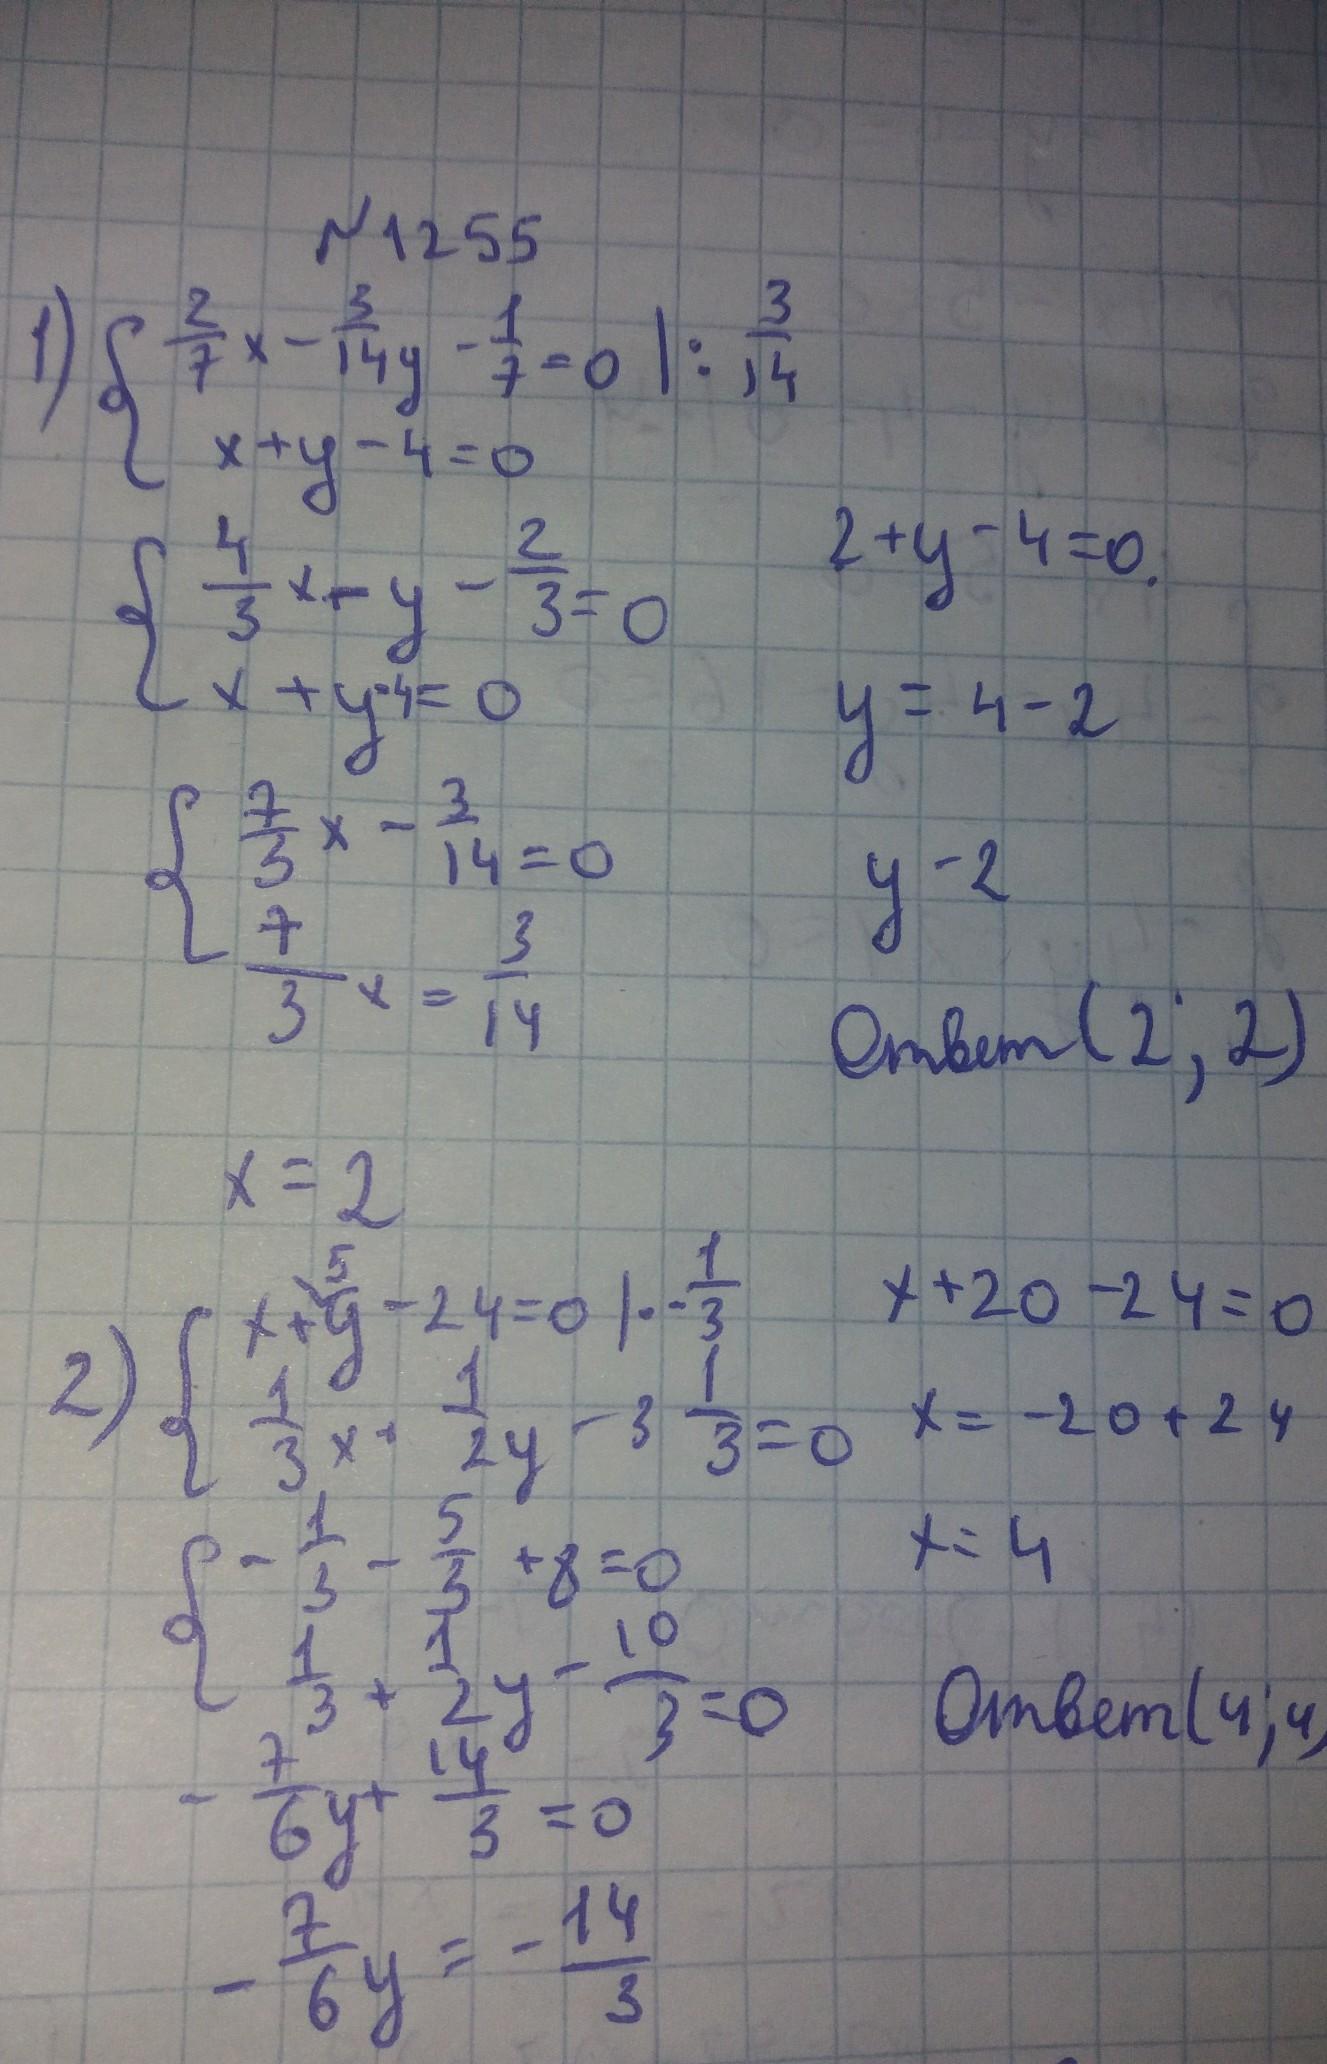 №1255
1) { 2/7 x - 3/14 y - 1/7 = 0 | : 3/14
x + y - 4 = 0
{ 4/3 x - y - 2/3 = 0
x + y - 4 = 0
{ 7/3 x - 3/14 = 0
7/3 x = 3/14
x = 2
2 + y - 4 = 0.
y = 4 - 2
y - 2
Ответ (2; 2)
2) { x + 5y - 24 = 0 | · - 1/3
1/3 x + 1/2 y - 3 1/3 = 0
{ - 1/3 - 5/3 + 8 = 0
1/3 + 1/2 y - 10/3 = 0
- 7/6 y + 14/3 = 0
- 7/6 y = - 14/3
x + 20 - 24 = 0
x = -20 + 24
x = 4
Ответ (4; 4)